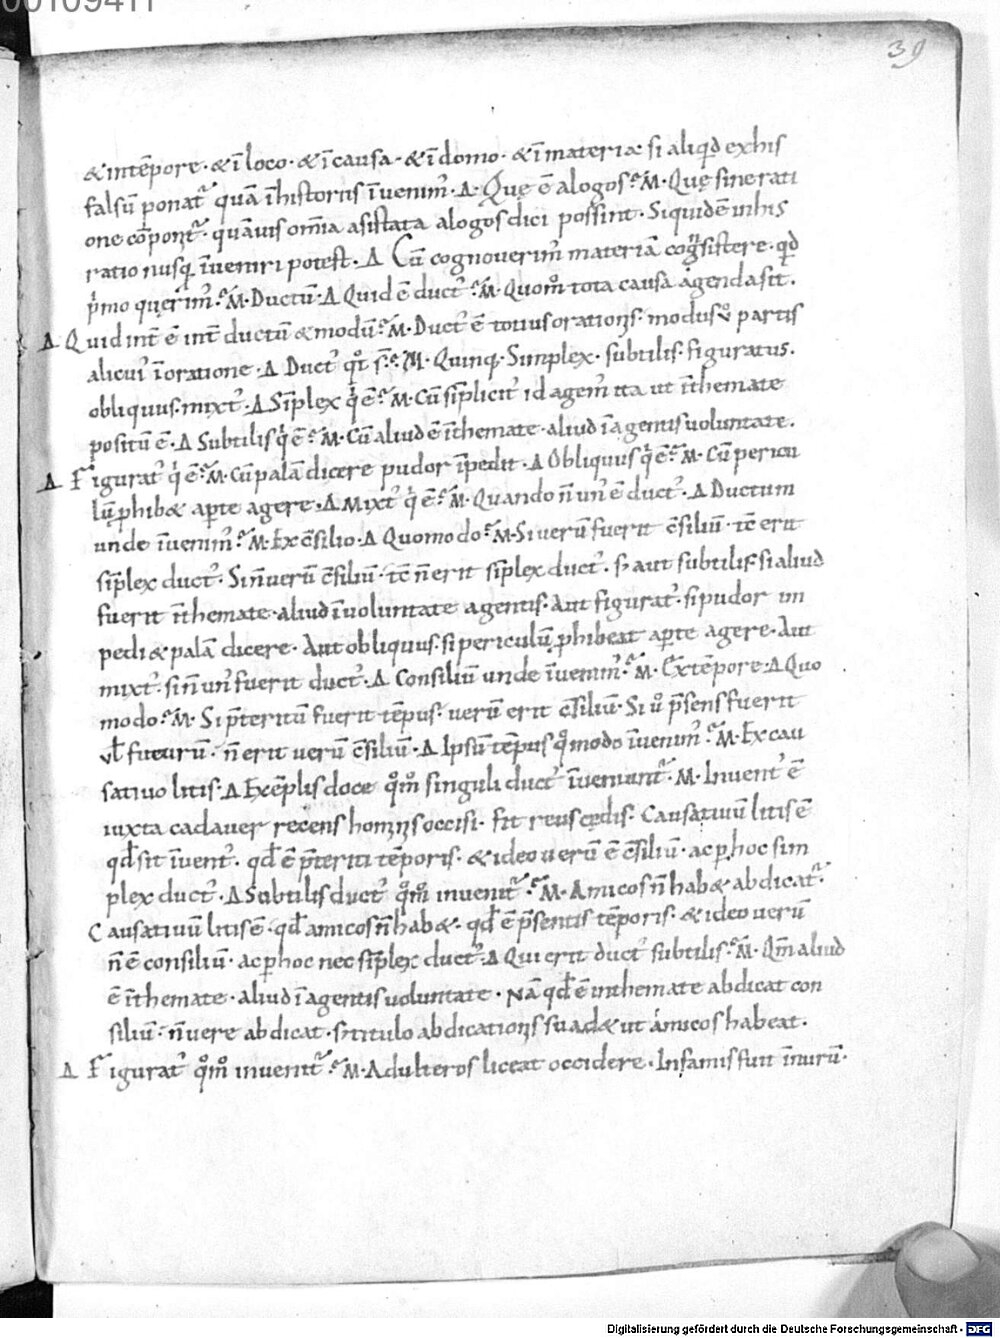 00109411
39
& intēpore · & ī loco · & ī causa · & ī domo · & ī materia · si aliqđ exhis
falsū ponat̄ quā ī historiis īvenim̄ · Δ · Quę ē alogos? M̄ · Quę sine rati
one cōponit̄ · quāvis om̄ia asistata alogos dici possint · Siquidē inhis
ratio nusq̄ īveniri potest · Δ Cū cognoverim̄ materiā sistere · qđ
p̄mo querim̄? M̄ · Ductū · Δ Quid ē duct̄? M̄ · Quom̄ tota causa agenda sit.
Δ Quid int̄ ē int̄ ductū & modū? M̄ · Duct̄ ē totius orationis · modus v̊ partis
alicui' ī oratione · Δ Duct' qt̄ s̄? M̄ · Quinq; · Simplex · subtilis · figuratus.
obliquus · mixt' · Δ Sīplex q̄ ē? M̄ · Cū sīplicit' id agem̄ ita ut īthemate
positū ē · Δ Subtilis q̄ ē? M̄ · Cū aliud ē īthemate · aliud ī agentis voluntate.
Δ Figurat' q̄ ē? M̄ · Cū palā dicere pudor īpedit · Δ Obliquus q̄ ē? M̄ · Cū pericu
lū phib& apte agere · Δ Mixt' q̄ ē? M̄ · Quando n̄ un' ē duct' · Δ Ductum
unde īvenim̄? M̄ · Ex c̄silio · Δ Quomodo? M̄ · Si verū fuerit c̄siliū · tc̄ erit
sīplex duct' · Si n̄ verū c̄siliū · tc̄ n̄ erit sīplex duct' · s; aut subtilis · si aliud
fuerit īthemate · aliud ī voluntate agentis · Aut figurat' · si pudor im
pedi& palā dicere · Aut obliquus · si periculū phibeat apte agere · Aut
mixt' · si n̄ un' fuerit duct' · Δ Consiliū unde īvenim̄? M̄ · Ex tēpore · Δ Quo
modo? M̄ · Si p̄teritū fuerit tēpus · verū erit c̄siliū · Si v̊ p̄sens fuerit
vl̄ futurū · n̄ erit verū c̄siliū · Δ Ipsū tēpus q̊modo īvenim̄? M̄ · Ex cau
sativo litis · Δ Exēplis doce q̊m̊ singuli duct' īveniunt̄? M̄ · Invent' ē
iuxta cadaver recens hominis occisi · fit reus cędis · Causativū litis ē
qđ sit īvent' · qđ ē p̄teriti tēporis · & ideo verū ē c̄siliū · ac p hoc sim
plex duct' · Δ Subtilis duct' q̊m̊ invenit̄? M̄ · Amicos n̄ hab& abdicat̄ ·
Causativū litis ē · qđ amicos n̄ hab& · qđ ē p̄sentis tēporis · & ideo verū
n̄ ē consiliū · ac p hoc nec sīplex duct' · Δ Qui erit duct' subtilis? M̄ · Qm̄ aliud
ē īthemate · aliud ī agentis voluntate · Nā qđ ē inthemate abdicat con
siliū · n̄ vere abdicat · s; titulo abdicationis suad& ut amicos habeat.
Δ Figurat' q̊m̊ invenit̄? M̄ · Adulteros liceat occidere · Infamis fuit īnurū ·
Digitalisierung gefördert durch die Deutsche Forschungsgemeinschaft - DFG